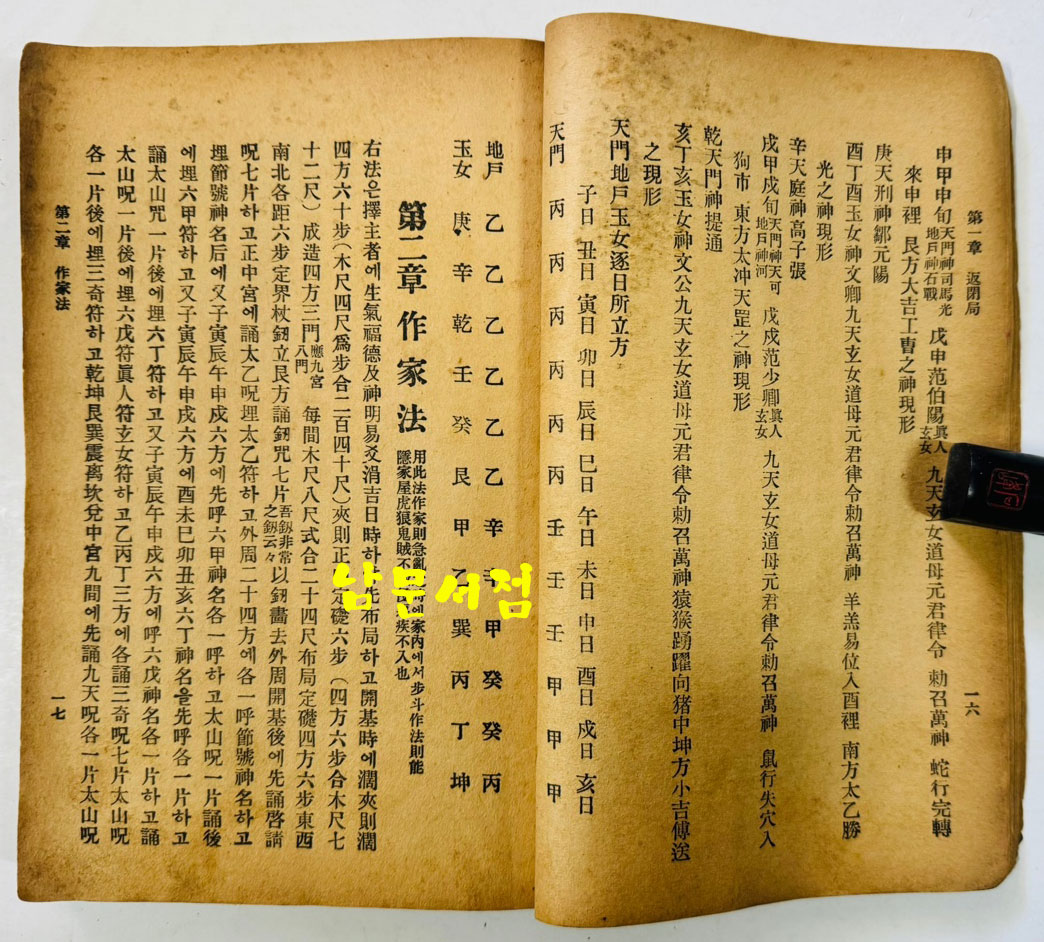 第一章　返閉局
一六
申甲申旬天門神司馬光地戶神石戰　戊申范伯陽眞人玄女　九天玄女道母元君律令　勅召萬神　蛇行完轉
來申裡　艮方大吉工曹之神現形
庚天刑神鄒元陽
酉丁酉玉女神文卿九天玄女道母元君律令勅召萬神　羊羔易位入酉裡　南方太乙勝
光之神現形
辛天庭神高子張
戌甲戌旬天門神天可地戶神河　戊戌范少卿眞人玄女　九天玄女道母元君律令勅召萬神　鼠行失穴入
狗市　東方太冲天罡之神現形
乾天門神提通
亥丁亥玉女神文公九天玄女道母元君律令勅召萬神猿猴踴躍向猪中坤方小吉傳送
之現形
天門地戶玉女逐日所立方
子日　丑日　寅日　卯日　辰日　巳日　午日　未日　申日　酉日　戌日　亥日
天門　丙　丙　丙　丙　丙　丙　壬　壬　壬　甲　甲　甲
地戶　乙　乙　乙　乙　乙　乙　辛　辛　甲　癸　癸　丙
玉女　庚　辛　乾　壬　癸　艮　甲　乙　巽　丙　丁　坤
第二章　作家法
用此法作家則急亂에家內에서步斗作法則能
隱家屋虎狼鬼賊不疾不入也
右法은擇主者에生氣福德及神明易爻涓吉日時하先布局하고開基時에濶夾則濶
四方六十步(木尺四尺爲步合二百四十尺)夾則正定礎六步(四方六步合木尺七
十二尺)成造四方三門應九宮八門　每間木尺八尺式合二十四尺布局定礎四方六步東西
南北各距六步定界杖釰立艮方誦釰咒七片吾釰非常之釰云々以釰畵去外周開基後에先誦啓請
呪七片하고正中宮에誦太乙呪埋太乙符하고外周二十四方에各一呼節號神名하고
埋節號神名后에又子寅辰午申戌六方에先呼六甲神名各一呼하고太山呪一片誦後
에埋六甲符하고又子寅辰午申戌六方에酉未巳卯丑亥六丁神名을先呼各一片하고
誦太山咒一片後에埋六丁符하고又子寅辰午申戌六方에呼六戊神名各一片하고誦
太山呪一片後에埋六戊符眞人符玄女符하고乙丙丁三方에各誦三奇呪七片太山呪
各一片後에埋三奇符하고乾坤艮巽震离坎兌中宮九間에先誦九天呪各一片太山呪
第二章　作家法
一七
남문서점